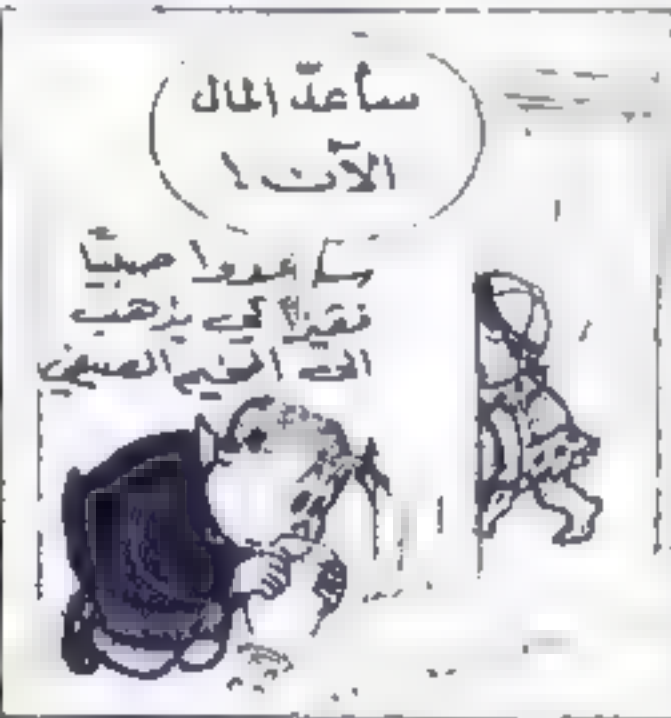 سأعدّ المال
الآن !
ساعدوا صبيّا
فقيرا كي يذهب
الى المخيم الصيفي